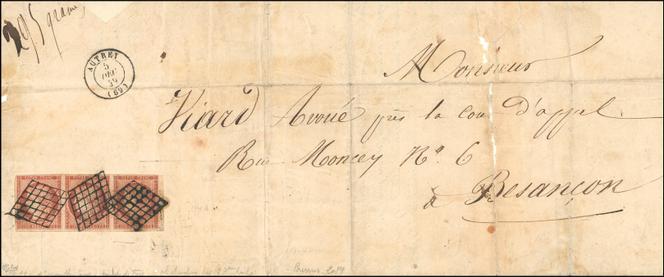 295 grammes
AUTREY
5
DEC
(69)
Monsieur
Viard Avoué près la cour d'appel
Rue Moncey N° 6
à Besançon